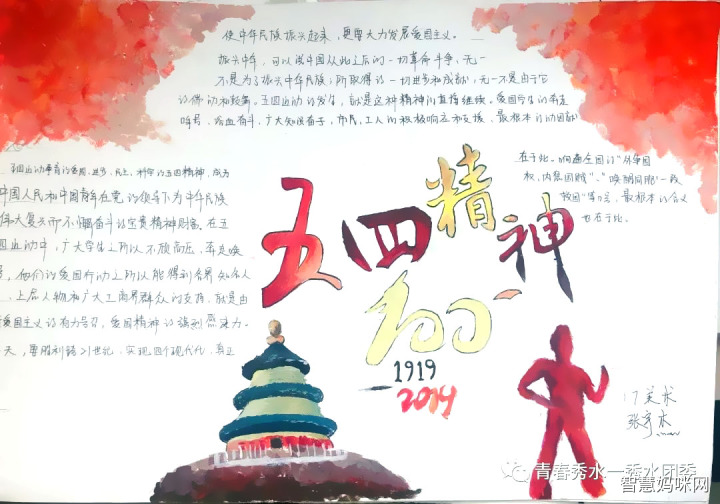 使中华民族振兴起来，更要大力发展爱国主义。
振兴中华，可以说中国从此之后的一切革命斗争，无一
不是为了振兴中华民族；所取得的一切进步和成就，无一不是由于它
的推动和鼓舞。五四运动的发生，就是这种精神的直接继续。爱国学生的奔走
呼号、浴血奋斗，广大知识分子，市民，工人的积极响应和支援，最根本的动因就
在于此。响遍全国的“外争国
权，内惩国贼”、“唤醒同胞”一致
救国”等口号，最根本的含义
也在于此。
五四运动孕育的爱国、进步、民主、科学的五四精神，成为
中国人民和中国青年在党的领导下为中华民族
伟大复兴而不懈奋斗的宝贵精神财富。在五
四运动中，广大学生之所以不顾高压，奔走唤
他们的爱国行动之所以能得到各界知名人
上层人物和广大工商界群众的支持，就是由
爱国主义的有力号召，爱国精神的强烈感染力。
天，要胜利跨入21世纪，实现四个现代化，真正
五四精神
100
1919
2019
17美术
张
青春秀水—秀水团委
智慧妈咪网